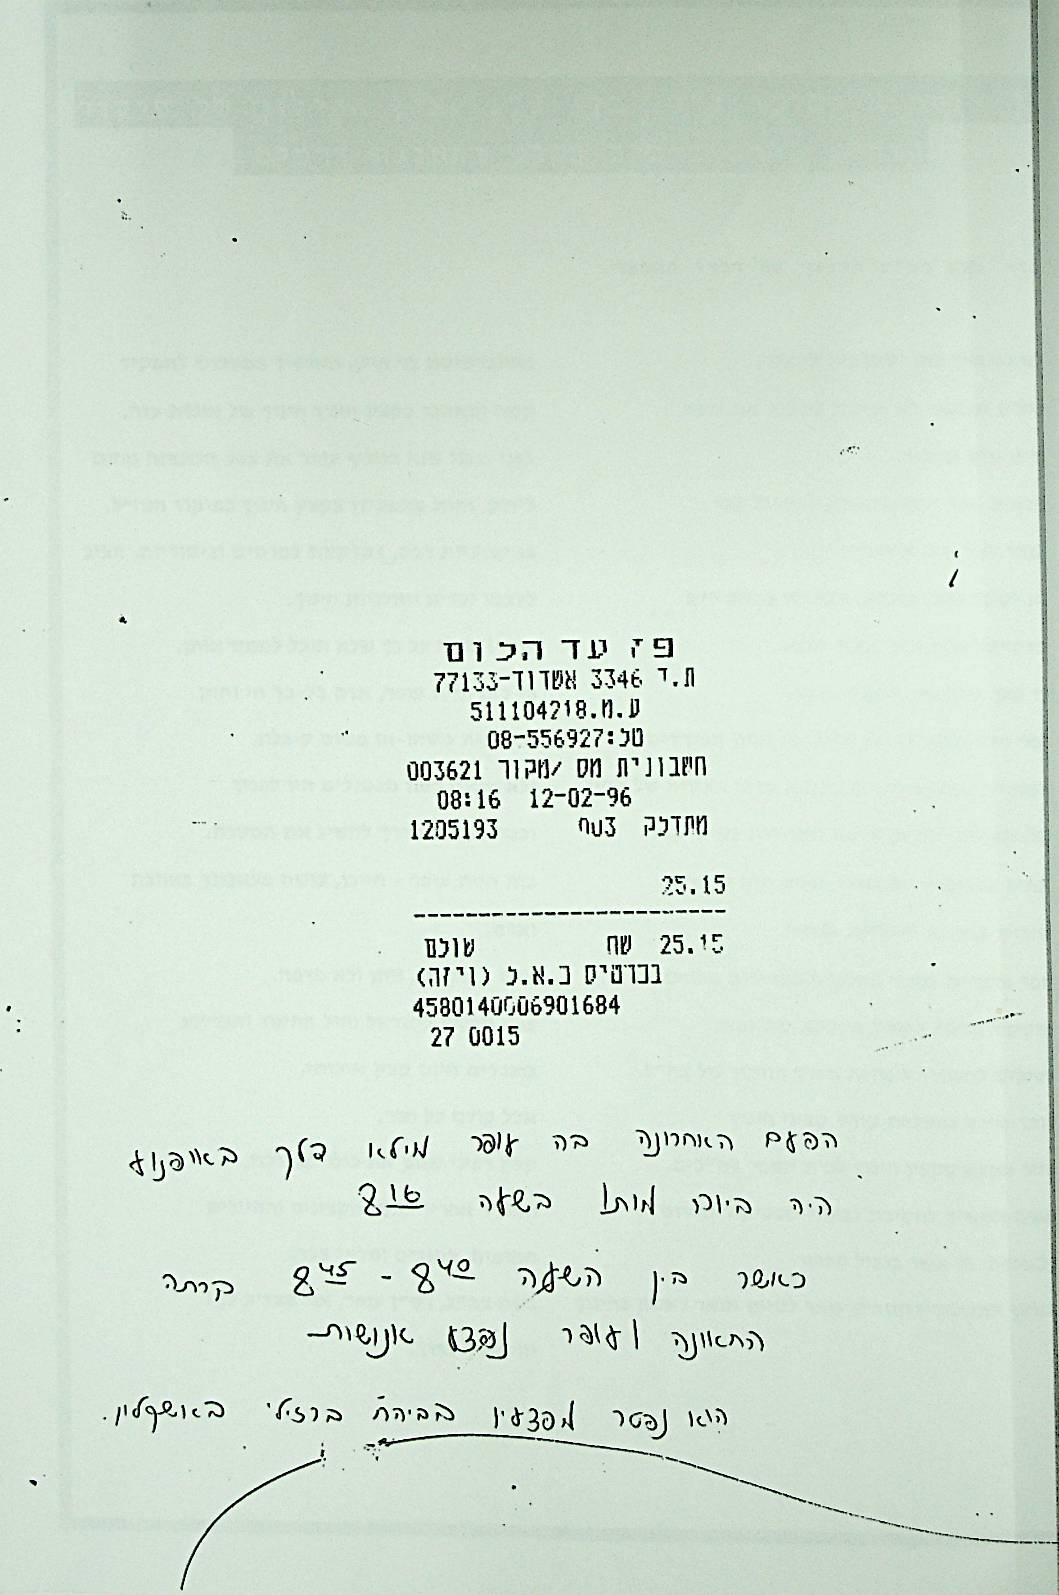 פז עד הלום
ת.ד 3346 אשדוד-77133
ע.מ.511104218
טל:08-556927
חשבונית מס /מקור 003621
08:16 12-02-96
מתדלק 3סח 1205193
25.15
------------------------
25.15 שח שולם
בכרטיס כ.א.ל (ויזה)
4580140006901684
27 0015
הפעם האחרונה בה עופר מילא דלק באופנוע
היה ביום מותו בשעה 8 16
כאשר בין השעה 8 40 - 8 45 קרתה
התאונה ועופר נפצע אנושות
הוא נפטר מפצעיו בביה״ח ברזילי באשקלון.